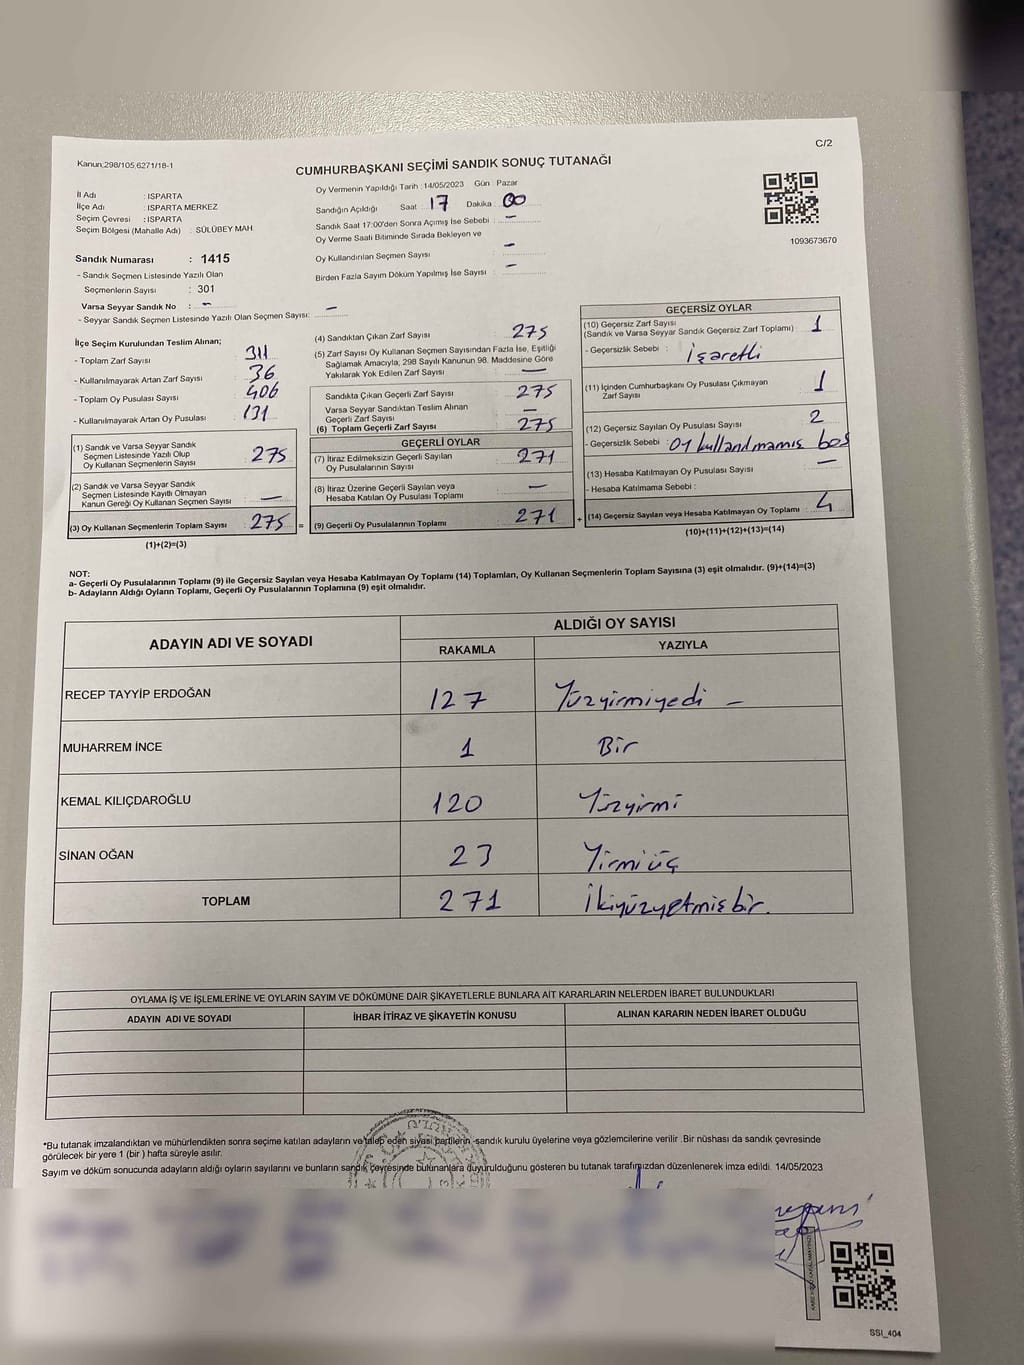 C/2
Kanun;298/105,6271/18-1
CUMHURBAŞKANI SEÇİMİ SANDIK SONUÇ TUTANAĞI
İl Adı : ISPARTA
İlçe Adı : ISPARTA MERKEZ
Seçim Çevresi : ISPARTA
Seçim Bölgesi (Mahalle Adı) : SÜLÜBEY MAH
Oy Vermenin Yapıldığı Tarih : 14/05/2023 Gün : Pazar
Sandığın Açıldığı Saat : 17 Dakika : 00
Sandık Saat 17:00'den Sonra Açımış İse Sebebi : –
Oy Verme Saati Bitiminde Sırada Bekleyen ve
Oy Kullandırılan Seçmen Sayısı : –
Birden Fazla Sayım Döküm Yapılmış İse Sayısı : –
1093673670
Sandık Numarası : 1415
- Sandık Seçmen Listesinde Yazılı Olan
Seçmenlerin Sayısı : 301
Varsa Seyyar Sandık No : –
- Seyyar Sandık Seçmen Listesinde Yazılı Olan Seçmen Sayısı: –
İlçe Seçim Kurulundan Teslim Alınan;
- Toplam Zarf Sayısı : 311
- Kullanılmayarak Artan Zarf Sayısı : 36
- Toplam Oy Pusulası Sayısı : 406
- Kullanılmayarak Artan Oy Pusulası : 131
(1) Sandık ve Varsa Seyyar Sandık
Seçmen Listesinde Yazılı Olup
Oy Kullanan Seçmenlerin Sayısı : 275
(2) Sandık ve Varsa Seyyar Sandık
Seçmen Listesinde Kayıtlı Olmayan
Kanun Gereği Oy Kullanan Seçmen Sayısı : –
(3) Oy Kullanan Seçmenlerin Toplam Sayısı : 275 =
(1)+(2)=(3)
(4) Sandıktan Çıkan Zarf Sayısı : 275
(5) Zarf Sayısı Oy Kullanan Seçmen Sayısından Fazla İse, Eşitliği
Sağlamak Amacıyla, 298 Sayılı Kanunun 98. Maddesine Göre
Yakılarak Yok Edilen Zarf Sayısı : –
Sandıkta Çıkan Geçerli Zarf Sayısı : 275
Varsa Seyyar Sandıktan Teslim Alınan
Geçerli Zarf Sayısı : –
(6) Toplam Geçerli Zarf Sayısı : 275
GEÇERLİ OYLAR
(7) İtiraz Edilmeksizin Geçerli Sayılan
Oy Pusulalarının Sayısı : 271
(8) İtiraz Üzerine Geçerli Sayılan veya
Hesaba Katılan Oy Pusulası Toplamı : –
(9) Geçerli Oy Pusulalarının Toplamı : 271 +
GEÇERSİZ OYLAR
(10) Geçersiz Zarf Sayısı
(Sandık ve Varsa Seyyar Sandık Geçersiz Zarf Toplamı) : 1
- Geçersizlik Sebebi : İşaretli
(11) İçinden Cumhurbaşkanı Oy Pusulası Çıkmayan
Zarf Sayısı : 1
(12) Geçersiz Sayılan Oy Pusulası Sayısı : 2
- Geçersizlik Sebebi : oy kullandmamış boş
(13) Hesaba Katılmayan Oy Pusulası Sayısı : –
- Hesaba Katılmama Sebebi :
(14) Geçersiz Sayılan veya Hesaba Katılmayan Oy Toplamı : 4
(10)+(11)+(12)+(13)=(14)
NOT:
a- Geçerli Oy Pusulalarının Toplamı (9) ile Geçersiz Sayılan veya Hesaba Katılmayan Oy Toplamı (14) Toplamları, Oy Kullanan Seçmenlerin Toplam Sayısına (3) eşit olmalıdır. (9)+(14)=(3)
b- Adayların Aldığı Oyların Toplamı, Geçerli Oy Pusulalarının Toplamına (9) eşit olmalıdır.
ADAYIN ADI VE SOYADI ALDIĞI OY SAYISI
RAKAMLA YAZIYLA
RECEP TAYYİP ERDOĞAN 127 Yüzyirmiyedi –
MUHARREM İNCE 1 Bir
KEMAL KILIÇDAROĞLU 120 Yüzyirmi
SİNAN OĞAN 23 Yirmiüç
TOPLAM 271 İkiyüzyetmişbir.
OYLAMA İŞ VE İŞLEMLERİNE VE OYLARIN SAYIM VE DÖKÜMÜNE DAİR ŞİKAYETLERLE BUNLARA AİT KARARLARIN NELERDEN İBARET BULUNDUKLARI
ADAYIN ADI VE SOYADI İHBAR İTİRAZ VE ŞİKAYETİN KONUSU ALINAN KARARIN NEDEN İBARET OLDUĞU
*Bu tutanak imzalandıktan ve mühürlendikten sonra seçime katılan adayların ve talep eden siyasi partilerin sandık kurulu üyelerine veya gözlemcilerine verilir .Bir nüshası da sandık çevresinde
görülecek bir yere 1 (bir ) hafta süreyle asılır.
Sayım ve döküm sonucunda adayların aldığı oyların sayılarını ve bunların sandık çevresinde bulunanlara duyurulduğunu gösteren bu tutanak tarafımızdan düzenlenerek imza edildi. 14/05/2023
SSI_404